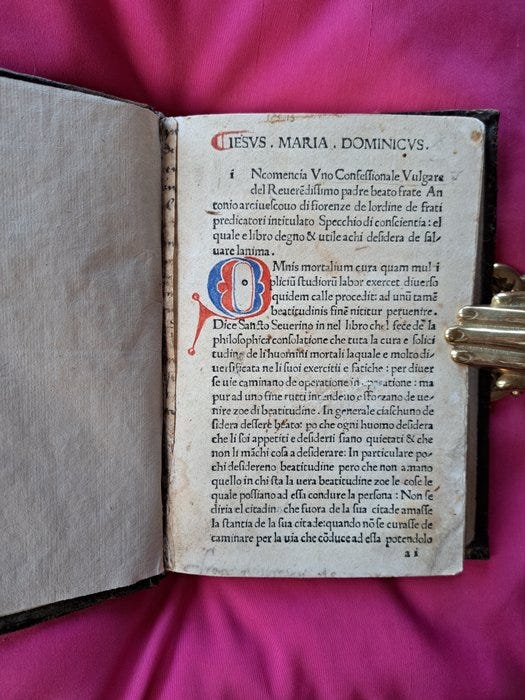 IESVS . MARIA . DOMINICVS .
i Ncomencia Vno Confessionale Vulgare
del Reuerēdissimo padre beato frate An
tonio arciuescouo di fiorenze de lordine de frati
predicatori intitulato Specchio di conscientia : el
quale e libro degno & utile a chi desidera de sal
uare lanima .
O Mnis mortalium cura quam mul i
pliciū studiorū labor exercet diuerso
quidem calle procedit: ad unū tamē
beatitudinis finē nititur peruenire .
Dice Sancto Seuerino in nel libro che l fece de la
philosophica consolatione che tuta la cura e solici
tudine de li huomini mortali laquale e molto di/
uersificata ne li suoi exercitii e fatiche : per diuer
se uie caminano de operatione in operatione : ma
pur ad uno fine tutti intendeno e sforzano de ue/
nire zoe di beatitudine . In generale ciaschuno de
sidera dessere beato: po che ogni huomo desidera
che li soi appetiti e desiderii siano quietati & che
non li māchi cosa a desiderare: In particulare po/
chi desidereno beatitudine pero che non amano
quello in chi sta la uera beatitudine zoe le cose le
quale possiano ad essa condure la persona : Non se
diria el citadin che fuora de la sua citade amasse
la stantia de la sua citade:quando nō se curasse de
caminare per la uia che cōduce ad essa potendolo
a i